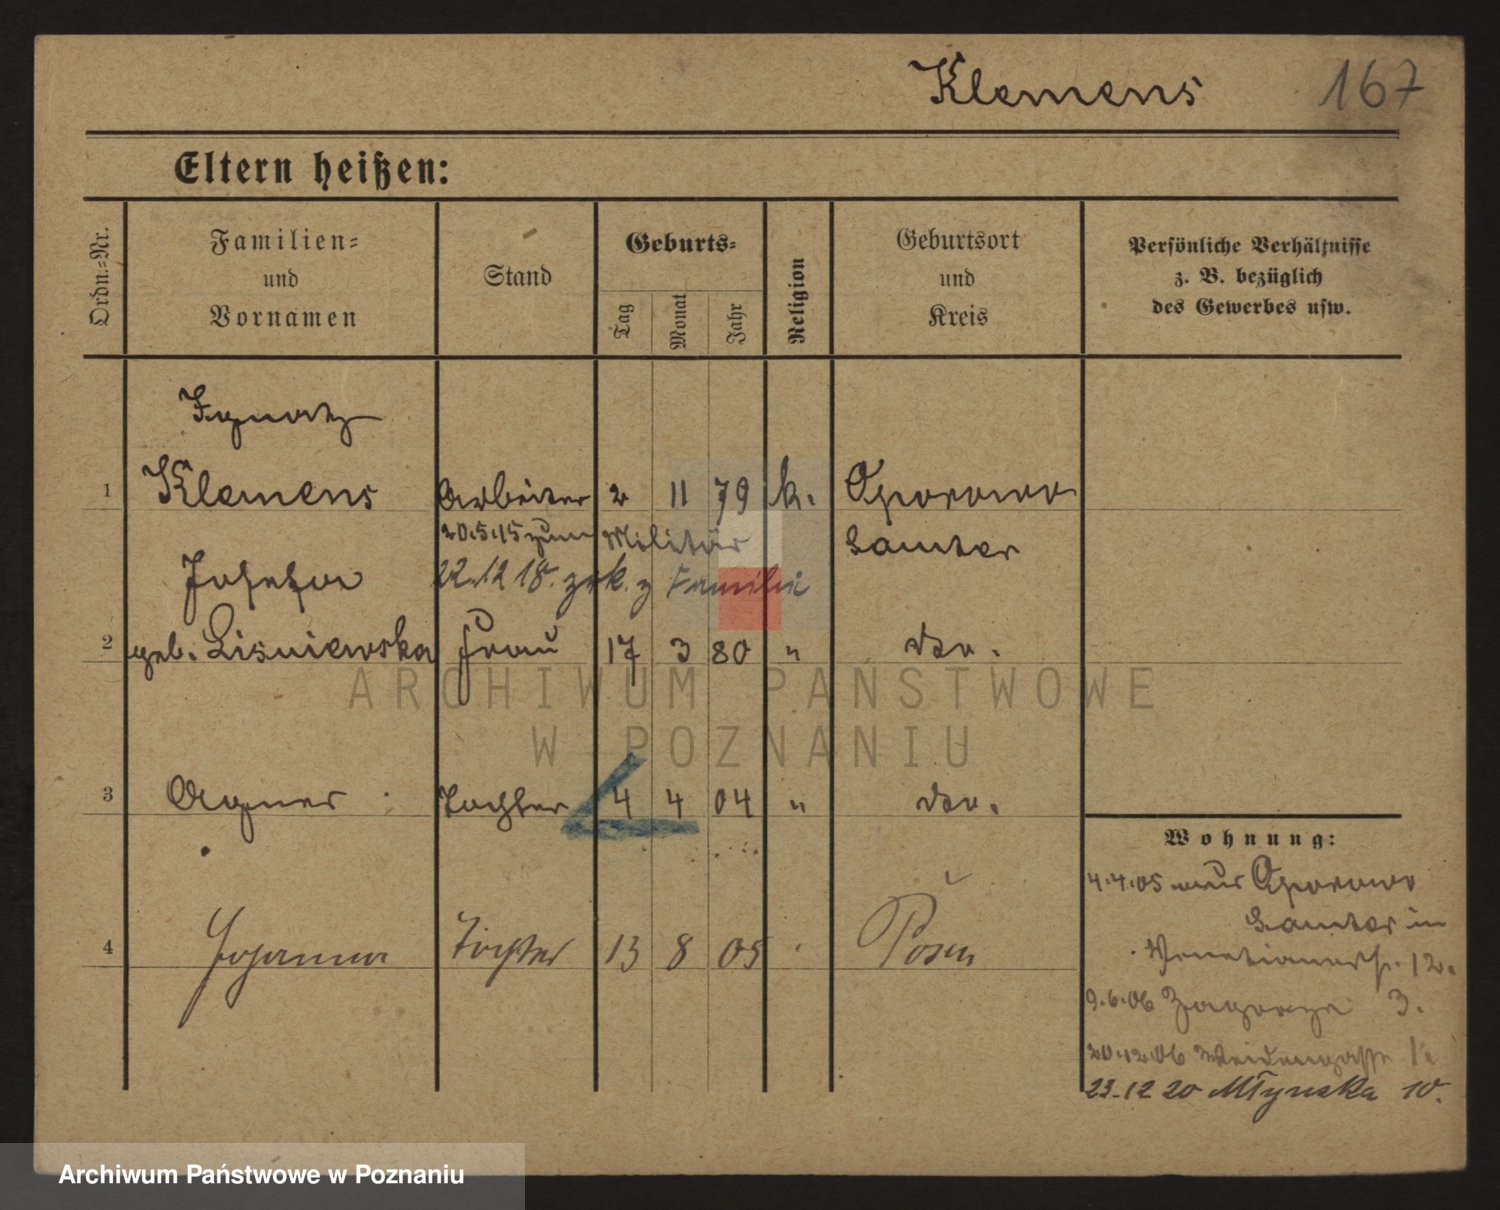 Klemens 167
Eltern heißen:
Ordn.=Nr.
Familien=
und
Vornamen
Stand
Geburts=
Tag
Monat
Jahr
Religion
Geburtsort
und
Kreis
Persönliche Verhältnisse
z. B. bezüglich
des Gewerbes usw.
Ignatz
1 Klemens Arbeiter 2 11 79 k. Oporowo
20.5.15 zum Militär Samter
Josefa 22.12 18. zrk. z Familie
2 geb. Lisniewska Frau 17 3 80 " do.
ARCHIWUM PAŃSTWOWE
W POZNANIU
3 Agnes Tochter 4 4 04 " do.
Wohnung:
4.4.05 aus Oporowo
Samter in
4 Johanna Tochter 13 8 05 Posen
Venetianerstr. 12.
9.6.06 Zagorze 3.
20.12.06 Weidengasse
23.12 20 Młynska 10.
Archiwum Państwowe w Poznaniu